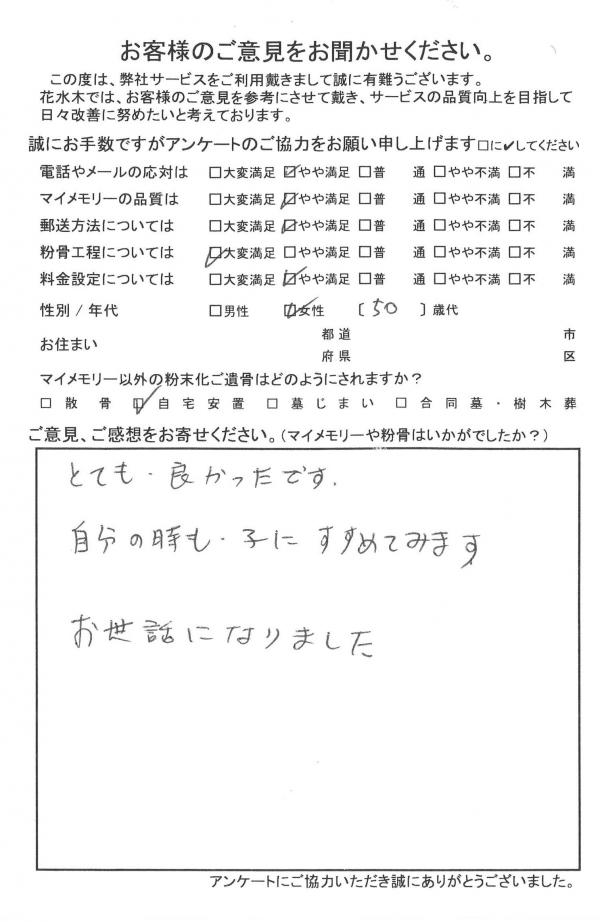 お客様のご意見をお聞かせください。
この度は、弊社サービスをご利用戴きまして誠に有難うございます。
花水木では、お客様のご意見を参考にさせて戴き、サービスの品質向上を目指して
日々改善に努めたいと考えております。
誠にお手数ですがアンケートのご協力をお願い申し上げます□に✔してください
電話やメールの応対は □大変満足 ☑やや満足 □普 通 □やや不満 □不 満
マイメモリーの品質は □大変満足 ☑やや満足 □普 通 □やや不満 □不 満
郵送方法については □大変満足 ☑やや満足 □普 通 □やや不満 □不 満
粉骨工程については ☑大変満足 □やや満足 □普 通 □やや不満 □不 満
料金設定については □大変満足 ☑やや満足 □普 通 □やや不満 □不 満
性別/年代 □男性 ☑女性 〔 50 〕歳代
お住まい 都道 市
府県 区
マイメモリー以外の粉末化ご遺骨はどのようにされますか？
□ 散 骨 ☑ 自 宅 安 置 □ 墓 じ ま い □ 合 同 墓 ・ 樹 木 葬
ご意見、ご感想をお寄せください。(マイメモリーや粉骨はいかがでしたか？)
とても・良かったです.
自分の時も・子にすすめてみます
お世話になりました
アンケートにご協力いただき誠にありがとうございました。